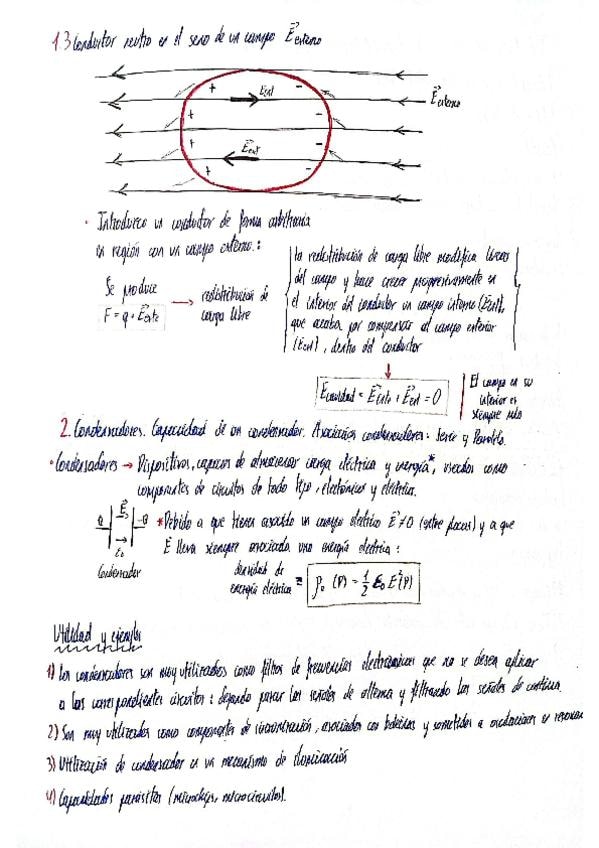 1.3 Conductor neutro en el seno de un campo E externo
+ Eint −
E externo
+ −
+ Eext −
+ −
• Introduzco un conductor de forma arbitraria
en región con un campo externo:
Se produce
F = q · Eext
→ redistribución de
carga libre
la redistribución de carga libre modifica líneas
del campo y hace crecer progresivamente en
el interior del conductor un campo interno (Eint),
que acaba por compensar al campo exterior
(Eext), dentro del conductor
Ecavidad = Eint + Eext = 0
El campo en su
interior es
siempre nulo
2. Condensadores. Capacidad de un condensador. Asociación condensadores: Serie y Paralelo.
• Condensadores → Dispositivos, capaces de almacenar carga eléctrica y energía*, usados como
componentes de circuitos de todo tipo, electrónicos y eléctricos.
Q E -Q
ε0
Condensador
* Debido a que tienen asociado un campo eléctrico E ≠ 0 (entre placas) y a que
E lleva siempre asociada una energía eléctrica:
densidad de
energía eléctrica = ρe (P) = 1/2 ε0 E²(P)
Utilidad y ejemplos
1) Los condensadores son muy utilizados como filtros de frecuencias electrónicas que no se desea aplicar
a los correspondientes circuitos: dejando pasar las señales de alterna y filtrando las señales de continua
2) Son muy utilizados como componentes de sincronización, asociados con bobinas y sometidos a oscilaciones en
3) Utilización de condensador en un mecanismo de iluminación
4) Capacidades parásitas (microchips, microcircuitos).